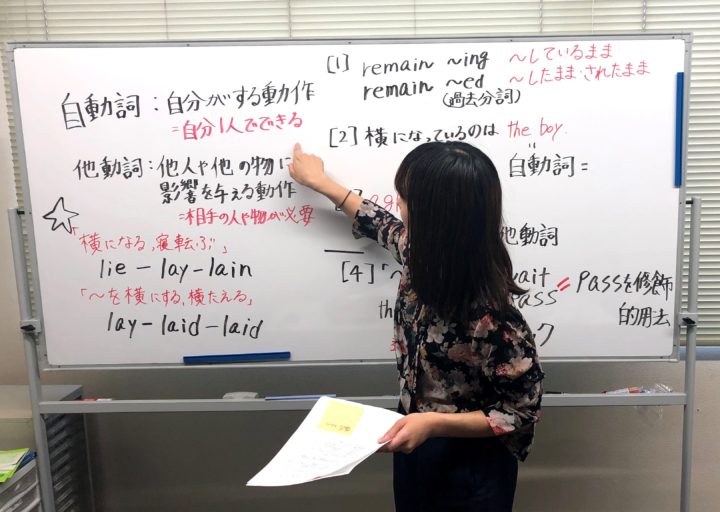 自動詞：自分がする動作
=自分1人でできる
他動詞：他人や他の物に
影響を与える動作
=相手の人や物が必要
「横になる，寝転ぶ」
lie－lay－lain
「～を横にする，横たえる」
lay－laid－laid
[1] remain ～ing ～しているまま
remain ～ed ～したまま・されたまま
(過去分詞)
[2] 横になっているのは the boy.
=
自動詞=
他動詞
[4]「～
wait
pass = passを修飾
的用法
th
ク